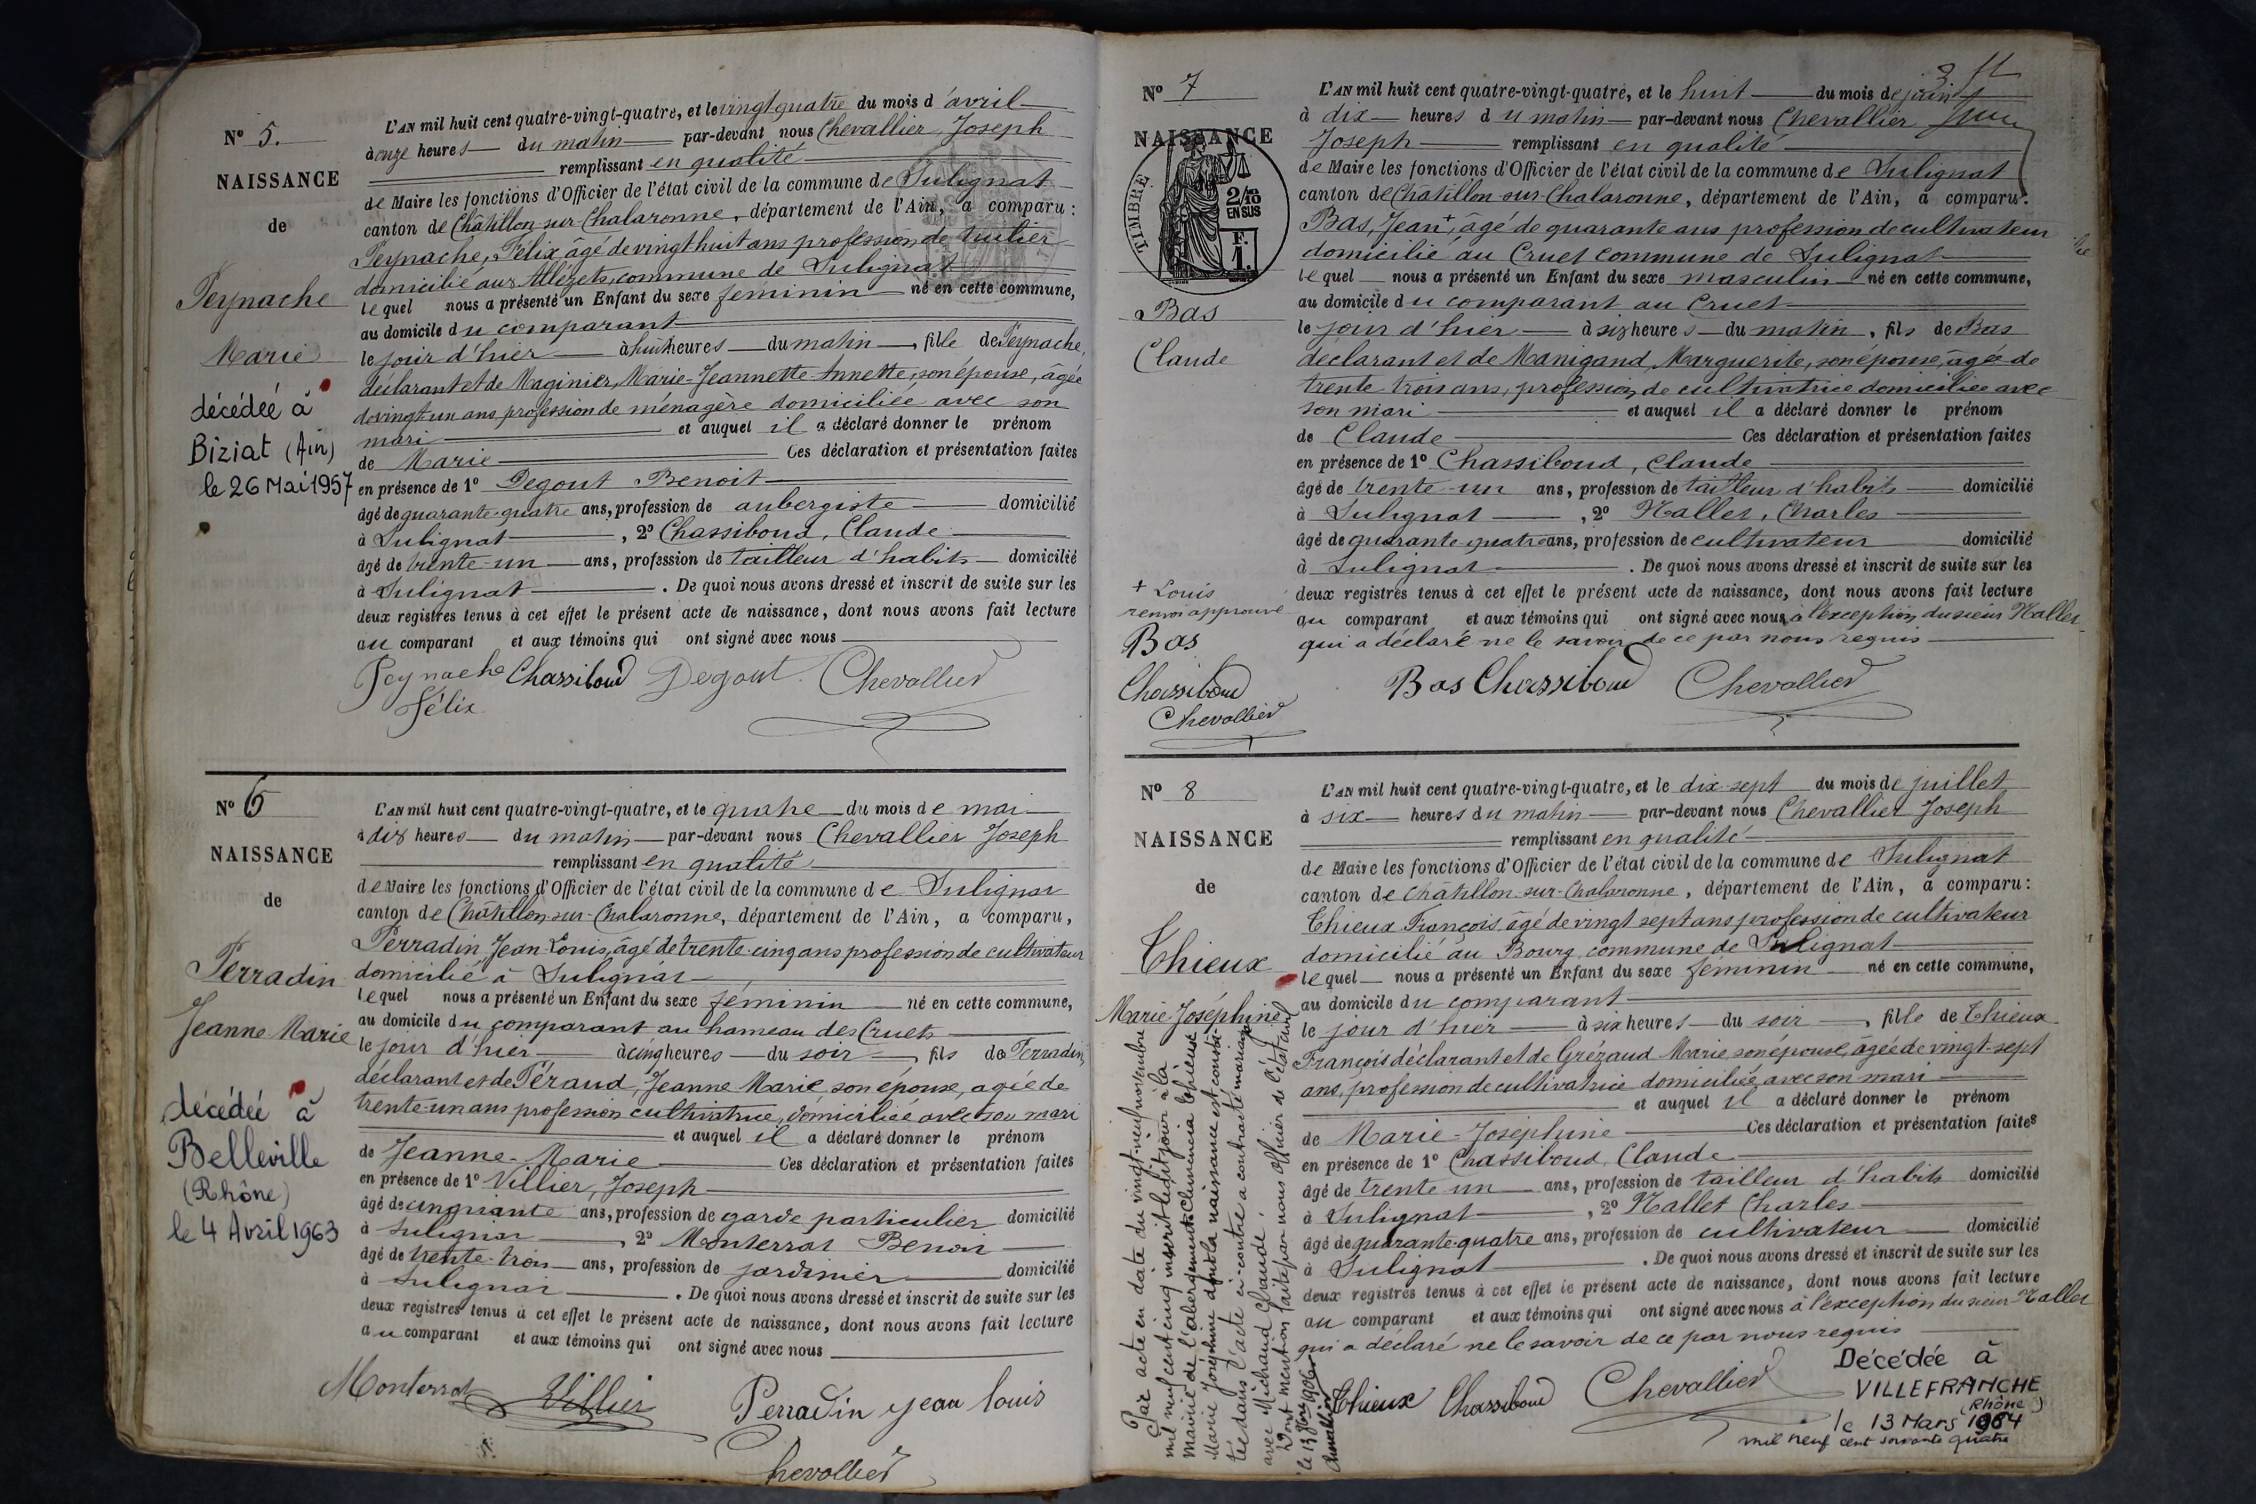 N° 5.
NAISSANCE
de
Peynache
Marie
décédée à
Biziat (Ain)
le 26 Mai 1957
L'AN mil huit cent quatre-vingt-quatre, et le vingt quatre du mois d'avril
à onze heures du matin par-devant nous Chevallier Joseph
remplissant en qualité
de Maire les fonctions d'Officier de l'état civil de la commune de Sulignat
canton de Châtillon-sur-Chalaronne, département de l'Ain, a comparu :
Peynache, Félix âgé de vingt huit ans profession de tuilier
domicilié aux Mézets, commune de Sulignat
lequel nous a présenté un Enfant du sexe féminin né en cette commune,
au domicile du comparant
le jour d'hier à huit heures du matin, fille de Peynache,
déclarant et de Maginier, Marie-Jeannette Annette, son épouse, âgée
de vingt un ans profession de ménagère domiciliée avec son
mari et auquel il a déclaré donner le prénom
de Marie Ces déclaration et présentation faites
en présence de 1° Degout Benoit
âgé de quarante-quatre ans, profession de aubergiste domicilié
à Sulignat, 2° Chassiboud, Claude
âgé de trente-un ans, profession de tailleur d'habits domicilié
à Sulignat. De quoi nous avons dressé et inscrit de suite sur les
deux registres tenus à cet effet le présent acte de naissance, dont nous avons fait lecture
au comparant et aux témoins qui ont signé avec nous
Peynache Chassiboud Degout Chevallier
Félix
N° 6
NAISSANCE
de
Perradin
Jeanne Marie
décédée à
Belleville
(Rhône)
le 4 Avril 1963
L'AN mil huit cent quatre-vingt-quatre, et le quatre du mois de mai
à dix heures du matin par-devant nous Chevallier Joseph
remplissant en qualité
de Maire les fonctions d'Officier de l'état civil de la commune de Sulignat
canton de Châtillon-sur-Chalaronne, département de l'Ain, a comparu,
Perradin, Jean Louis, âgé de trente-cinq ans profession de cultivateur
domicilié à Sulignat
lequel nous a présenté un Enfant du sexe féminin né en cette commune,
au domicile du comparant au hameau des Cruets
le jour d'hier à cinq heures du soir, fils de Perradin,
déclarant et de Féraud, Jeanne Marie son épouse, agée de
trente-un ans profession cultivatrice, domiciliée avec son mari
et auquel il a déclaré donner le prénom
de Jeanne-Marie Ces déclaration et présentation faites
en présence de 1° Villier, Joseph
âgé de cinquante ans, profession de garde particulier domicilié
à Sulignat, 2° Monterrat Benoit
âgé de trente-trois ans, profession de jardinier domicilié
à Sulignat. De quoi nous avons dressé et inscrit de suite sur les
deux registres tenus à cet effet le présent acte de naissance, dont nous avons fait lecture
au comparant et aux témoins qui ont signé avec nous
Monterrat Villier Perradin jean louis
Chevallier
3
N° 7
NAISSANCE
TIMBRE
2/10
EN SUS
F.
1.
Bas
Claude
+ Louis
renvoi approuvé
Bas
Chassiboud
Chevallier
L'AN mil huit cent quatre-vingt-quatre, et le huit du mois de juin
à dix heures du matin par-devant nous Chevallier
Joseph remplissant en qualité
de Maire les fonctions d'Officier de l'état civil de la commune de Sulignat
canton de Châtillon-sur-Chalaronne, département de l'Ain, a comparu :
Bas, Jean +, âgé de quarante ans profession de cultivateur
domicilié au Cruet commune de Sulignat
lequel nous a présenté un Enfant du sexe masculin né en cette commune,
au domicile du comparant au Cruet
le jour d'hier à six heures du matin, fils de Bas
déclarant et de Manigand, Marguerite, son épouse, âgée de
trente-trois ans, profession de cultivatrice domiciliée avec
son mari et auquel il a déclaré donner le prénom
de Claude Ces déclaration et présentation faites
en présence de 1° Chassiboud, Claude
âgé de trente-un ans, profession de tailleur d'habits domicilié
à Sulignat, 2° Nallet, Charles
âgé de quarante-quatre ans, profession de cultivateur domicilié
à Sulignat. De quoi nous avons dressé et inscrit de suite sur les
deux registres tenus à cet effet le présent acte de naissance, dont nous avons fait lecture
au comparant et aux témoins qui ont signé avec nous, à l'exception du sieur Nallet
qui a déclaré ne le savoir de ce par nous requis
Bas Chassiboud Chevallier
N° 8
NAISSANCE
de
Thieux
Marie-Joséphine
Par acte en date du vingt-neuf novembre
mil neuf cent cinq inscrit le dit jour à la
mairie de l'abergement-Clémencia Thieux
Marie Joséphine dont la naissance est consta-
tée dans l'acte ci-contre a contracté mariage
avec Michaud Claude.
Dont mention faite par nous officier de l'état civil
le 13 1906
Chevallier
L'AN mil huit cent quatre-vingt-quatre, et le dix-sept du mois de juillet
à six heures du matin par-devant nous Chevallier Joseph
remplissant en qualité
de Maire les fonctions d'Officier de l'état civil de la commune de Sulignat
canton de Châtillon-sur-Chalaronne, département de l'Ain, a comparu :
Thieux François âgé de vingt sept ans profession de cultivateur
domicilié au Bourg commune de Sulignat
lequel nous a présenté un Enfant du sexe féminin né en cette commune,
au domicile du comparant
le jour d'hier à six heures du soir, fille de Thieux
François déclarant et de Grézaud Marie son épouse, âgée de vingt-sept
ans, profession de cultivatrice domiciliée avec son mari
et auquel il a déclaré donner le prénom
de Marie-Joséphine Ces déclaration et présentation faites
en présence de 1° Chassiboud, Claude
âgé de trente un ans, profession de tailleur d'habits domicilié
à Sulignat, 2° Nallet Charles
âgé de quarante-quatre ans, profession de cultivateur domicilié
à Sulignat. De quoi nous avons dressé et inscrit de suite sur les
deux registres tenus à cet effet le présent acte de naissance, dont nous avons fait lecture
au comparant et aux témoins qui ont signé avec nous à l'exception du sieur Nallet
qui a déclaré ne le savoir de ce par nous requis
Thieux Chassiboud Chevallier
Décédée à
VILLEFRANCHE
(Rhône)
le 13 Mars 1964
mil neuf cent soixante quatre